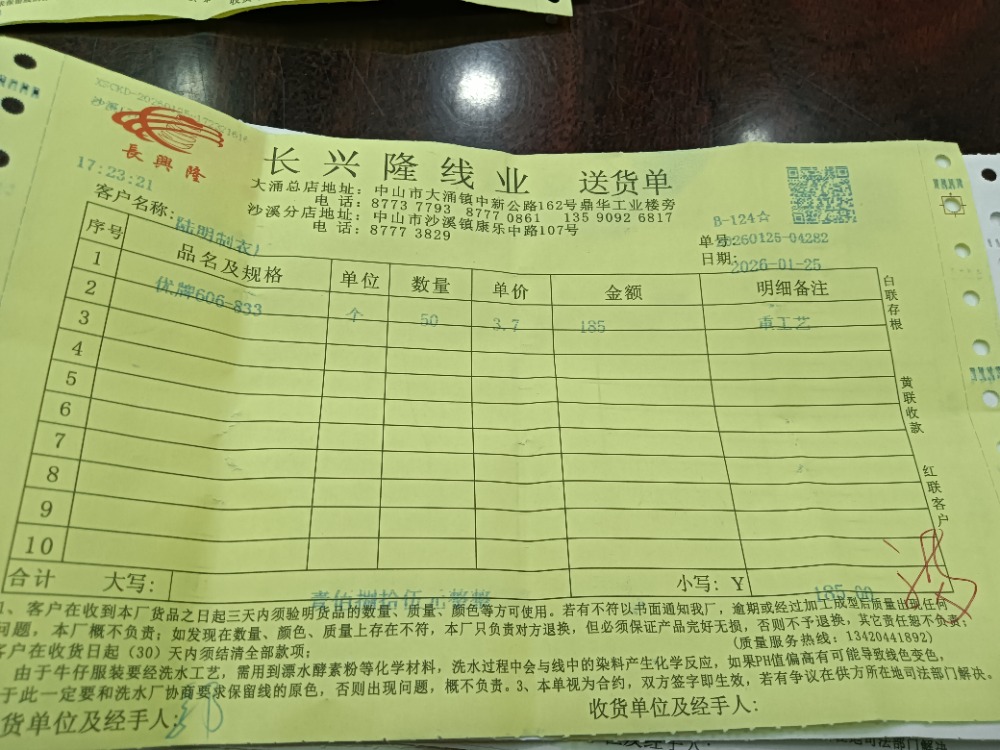 长兴隆线业 送货单
長興隆
17:23:21
大涌总店地址：中山市大涌镇中新公路162号鼎华工业楼旁
电话：8773 7793 8777 0861 135 9092 6817
沙溪分店地址：中山市沙溪镇康乐中路107号
电话：8777 3829
B-124☆
客户名称：陆明制衣
单号：20260125-04282
日期：2026-01-25
序号 品名及规格 单位 数量 单价 金额 明细备注
1 优牌606-833 个 50 3.7 185 重工艺
2
3
4
5
6
7
8
9
10
白联存根
黄联收款
红联客户
合计 大写： 壹佰捌拾伍元整 小写：Y 185.00
1、客户在收到本厂货品之日起三天内须验明货品的数量、质量、颜色等方可使用。若有不符以书面通知我厂，逾期或经过加工成型后质量出现任何
问题，本厂概不负责；如发现在数量、颜色、质量上存在不符，本厂只负责对方退换，但必须保证产品完好无损，否则不予退换，其它责任恕不负责。
(质量服务热线：13420441892)
客户在收货日起（30）天内须结清全部款项；
由于牛仔服装要经洗水工艺，需用到漂水酵素粉等化学材料，洗水过程中会与线中的染料产生化学反应，如果PH值偏高有可能导致线色变色，
于此一定要和洗水厂协商要求保留线的原色，否则出现问题，概不负责。3、本单视为合约，双方签字即生效，若有争议在供方所在地司法部门解决。
货单位及经手人：
收货单位及经手人：